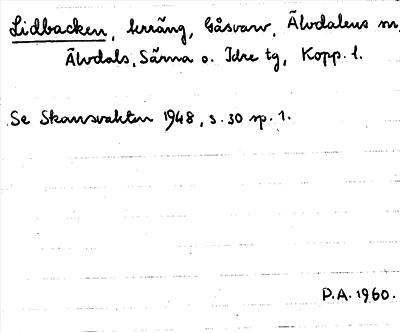 Lidbacken, terräng, Gåsvarv, Älvdalens sn,
Älvdals, Särna o. Idre tg, Kopp. l.
Se Skansvakten 1948, s. 30 sp. 1.
P.A. 1960.